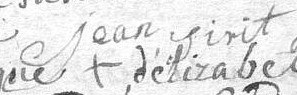 jean pirit
que + d'elizabet